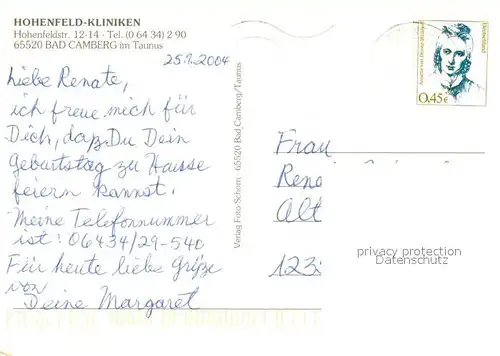 HOHENFELD-KLINIKEN
Hohenfeldstr. 12-14 · Tel. (0 64 34) 2 90
65520 BAD CAMBERG im Taunus
25.1.2004
Liebe Renate,
ich freue mich für
Dich, daß Du Dein
Geburtstag zu Hausse
feiern kannst.
Meine Telefonnummer
ist: 06434/29-540
Für heute liebe Grüße
von
Deine Margaret
Verlag Foto Schorn · 65520 Bad Camberg/Taunus
Deutschland
Annette von Droste-Hülshoff
0,45€
Frau
Rena
Alt
123
privacy protection
Datenschutz